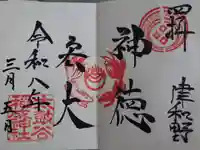 四拝
津和野
神徳
宏大
令和八年
三月五日